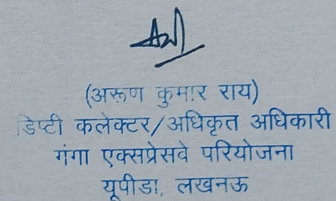 (अरूण कुमार राय)
डिप्टी कलेक्टर/अधिकृत अधिकारी
गंगा एक्सप्रेसवे परियोजना
यूपीडा, लखनऊ